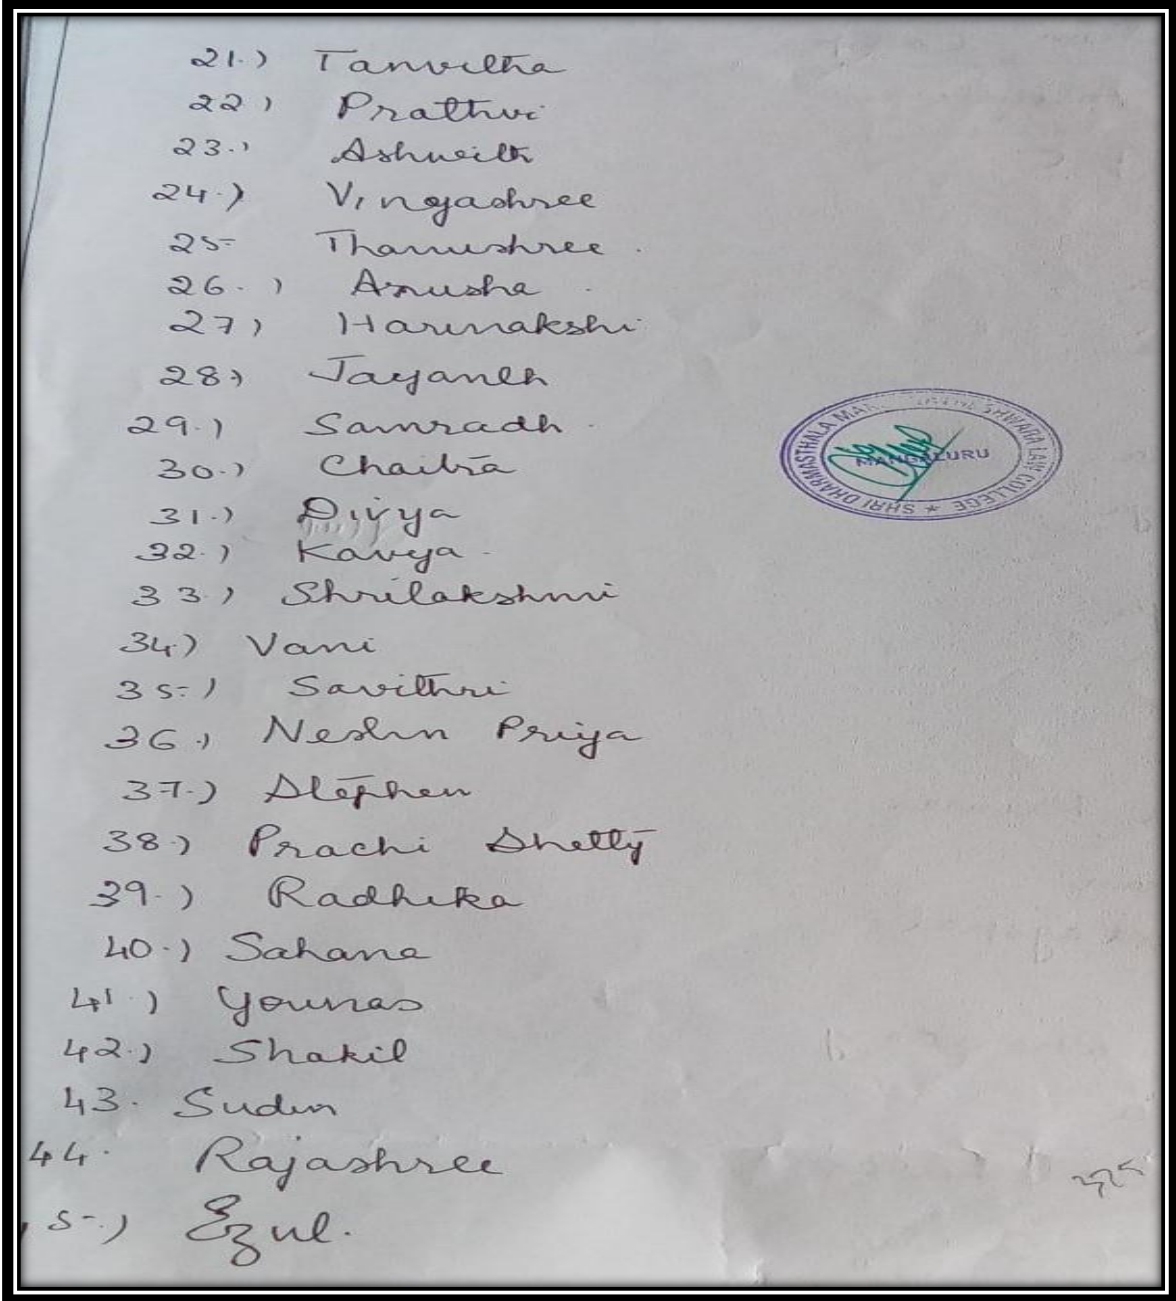 21.) Tanvitha
22) Prathvi
23.) Ashwith
24.) Vingashree
25- Thanushree.
26.) Anusha
27) Harinakshi
28) Jayanth
29.) Samradh
30.) Chaitra
31.) Divya
32.) Kavya
33.) Shrilakshmi
34.) Vani
35-) Savithri
36.) Neslin Priya
37.) Stephen
38.) Prachi Shetty
39.) Radhika
40.) Sahana
41.) Younas
42.) Shakil
43. Sudin
44. Rajashree
5-.) Ezul.
SHRI DHARMASTHALA SHWARA LAW COLLEGE ★
MANGALURU